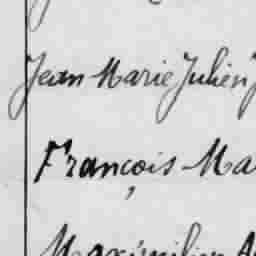 Jean Marie Julien
François Ma
Maximilien